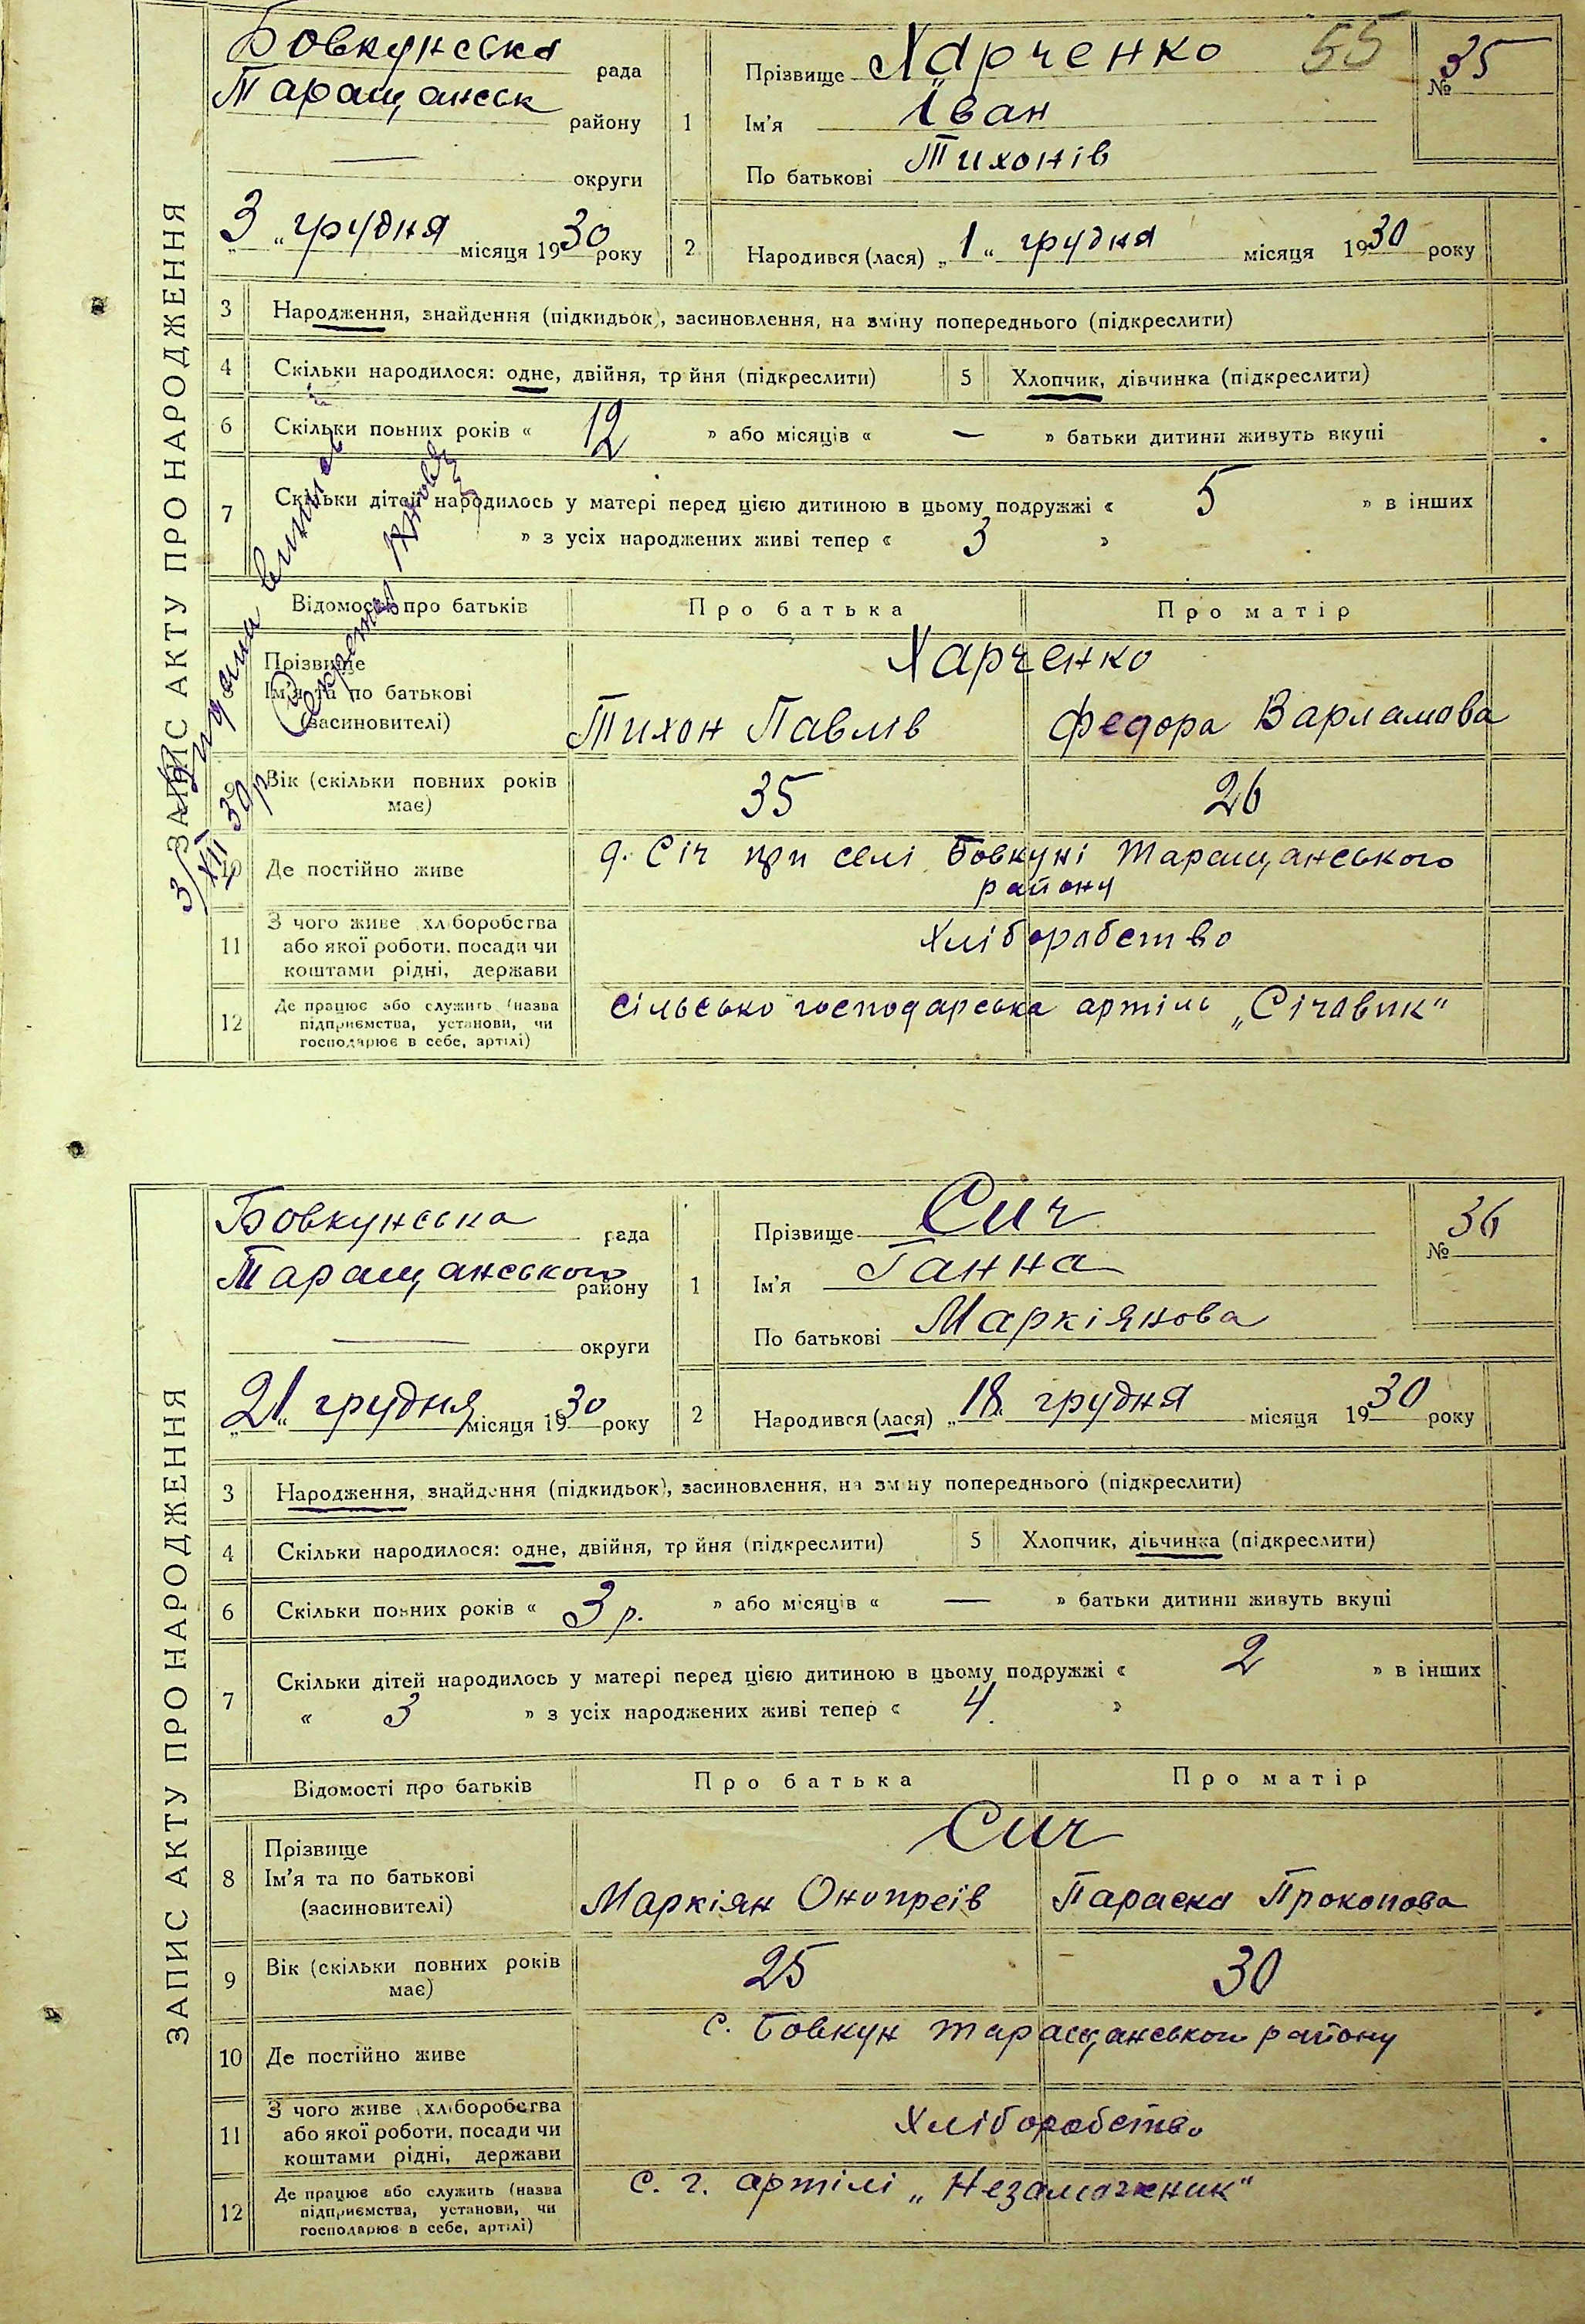 Бовкунська рада
Таращанськ району
округи
„3“ грудня місяця 1930 року
1
Прізвище Харченко
55
№ 35
Ім'я Іван
По батькові Тихонів
2
Народився (лася) „1“ грудня місяця 1930 року
ЗАПИС АКТУ ПРО НАРОДЖЕННЯ
3 Народження, знайдення (підкидьок), засиновлення, на зміну попереднього (підкреслити)
4 Скільки народилося: одне, двійня, трійня (підкреслити)
5 Хлопчик, дівчинка (підкреслити)
6 Скільки повних років « 12 » або місяців « — » батьки дитини живуть вкупі
7 Скільки дітей народилось у матері перед цією дитиною в цьому подружжі « 5 » в інших
» з усіх народжених живі тепер « 3 »
Відомості про батьків Про батька Про матір
Прізвище Харченко
Ім'я та по батькові
(засиновителі) Тихон Павлів Федора Варламова
9 Вік (скільки повних років має) 35 26
10 Де постійно живе д. Січ при селі Бовкуні Таращанського
району
11 З чого живе хліборобства
або якої роботи, посади чи
коштами рідні, держави Хліборобство
12 Де працює або служить (назва
підприємства, установи, чи
господарює в себе, артілі) Сільсько господарська артіль „Січовик“
3/XII 30р
Бовкунська рада
Таращанського району
округи
„21“ грудня місяця 1930 року
1
Прізвище Сич
№ 36
Ім'я Ганна
По батькові Маркіянова
2
Народився (лася) „18“ грудня місяця 1930 року
ЗАПИС АКТУ ПРО НАРОДЖЕННЯ
3 Народження, знайдення (підкидьок), засиновлення, на зміну попереднього (підкреслити)
4 Скільки народилося: одне, двійня, трійня (підкреслити)
5 Хлопчик, дівчинка (підкреслити)
6 Скільки повних років « 3 р. » або місяців « — » батьки дитини живуть вкупі
7 Скільки дітей народилось у матері перед цією дитиною в цьому подружжі « 2 » в інших
« 3 » з усіх народжених живі тепер « 4. »
Відомості про батьків Про батька Про матір
8 Прізвище Сич
Ім'я та по батькові
(засиновителі) Маркіян Онопреїв Параска Прокопова
9 Вік (скільки повних років має) 25 30
10 Де постійно живе с. Бовкун Таращанського району
11 З чого живе хліборобства
або якої роботи, посади чи
коштами рідні, держави Хліборобство
12 Де працює або служить (назва
підприємства, установи, чи
господарює в себе, артілі) с. г. артілі „Незаможник“